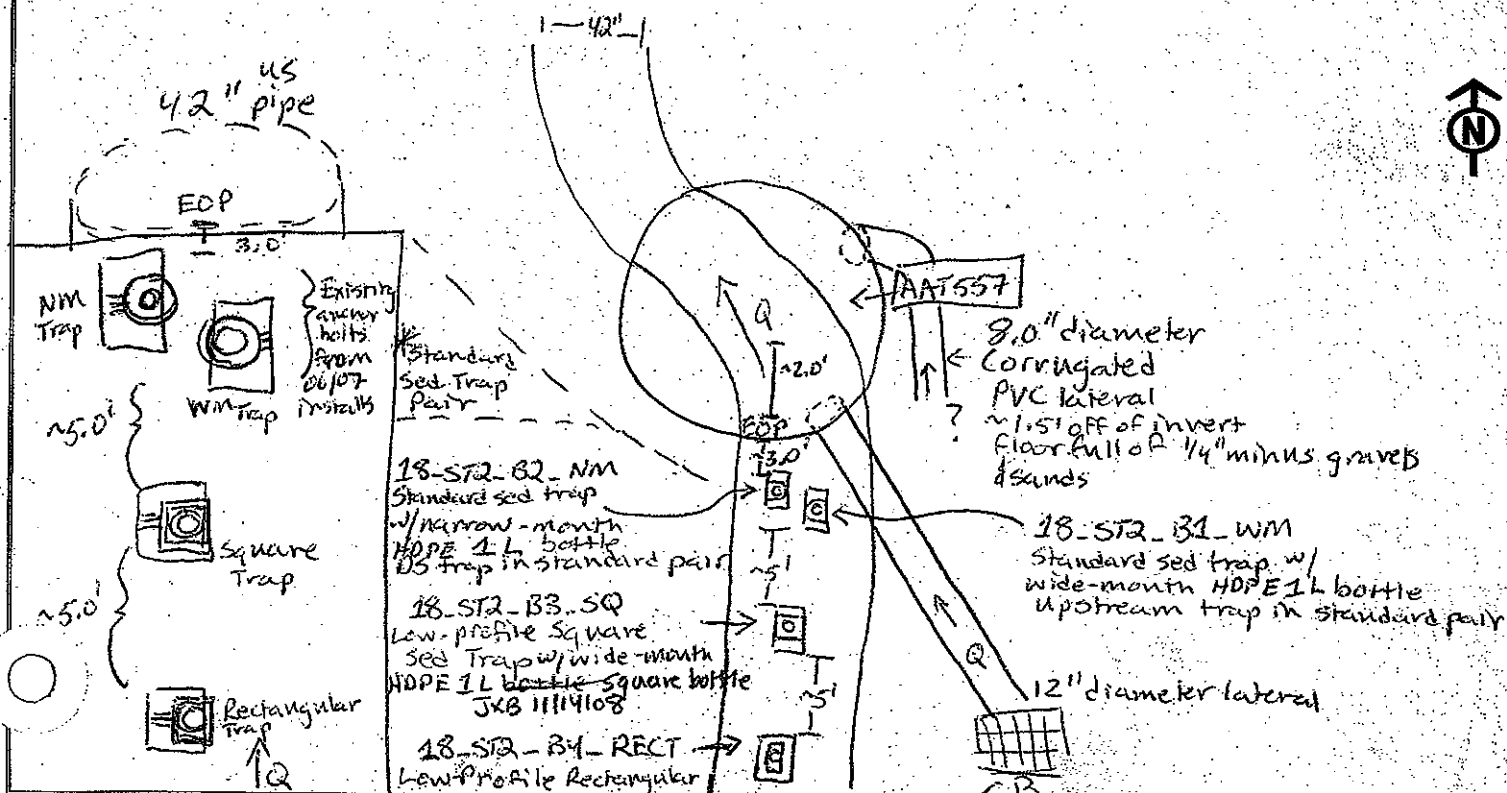 42" US
pipe
EOP
3.0'
NM
Trap
WM Trap
Existing
anchor
bolts
from
06/07
installs
~5.0'
Square
Trap
~5.0'
Rectangular
Trap
Q
* Standard
Sed. Trap
Pair
1—42"—1
N
Q
~2.0'
EOP
~3.0'
AAT557
8.0" diameter
Corrugated
PVC lateral
~1.5' off of invert
floor full of 1/4" minus gravels
& sands
?
18-ST2-B2-NM
Standard sed trap
w/narrow-mouth
HDPE 1 L bottle
DS trap in standard pair
~5'
18-ST2-B1-WM
Standard sed trap w/
wide-mouth HDPE 1 L bottle
Upstream trap in standard pair
18-ST2-B3-SQ
Low-profile Square
Sed Trap w/ wide-mouth
HDPE 1 L bottle square bottle
JXB 11/14/08
~5'
Q
12" diameter lateral
18-ST2-B4-RECT
Low-Profile Rectangular
CB